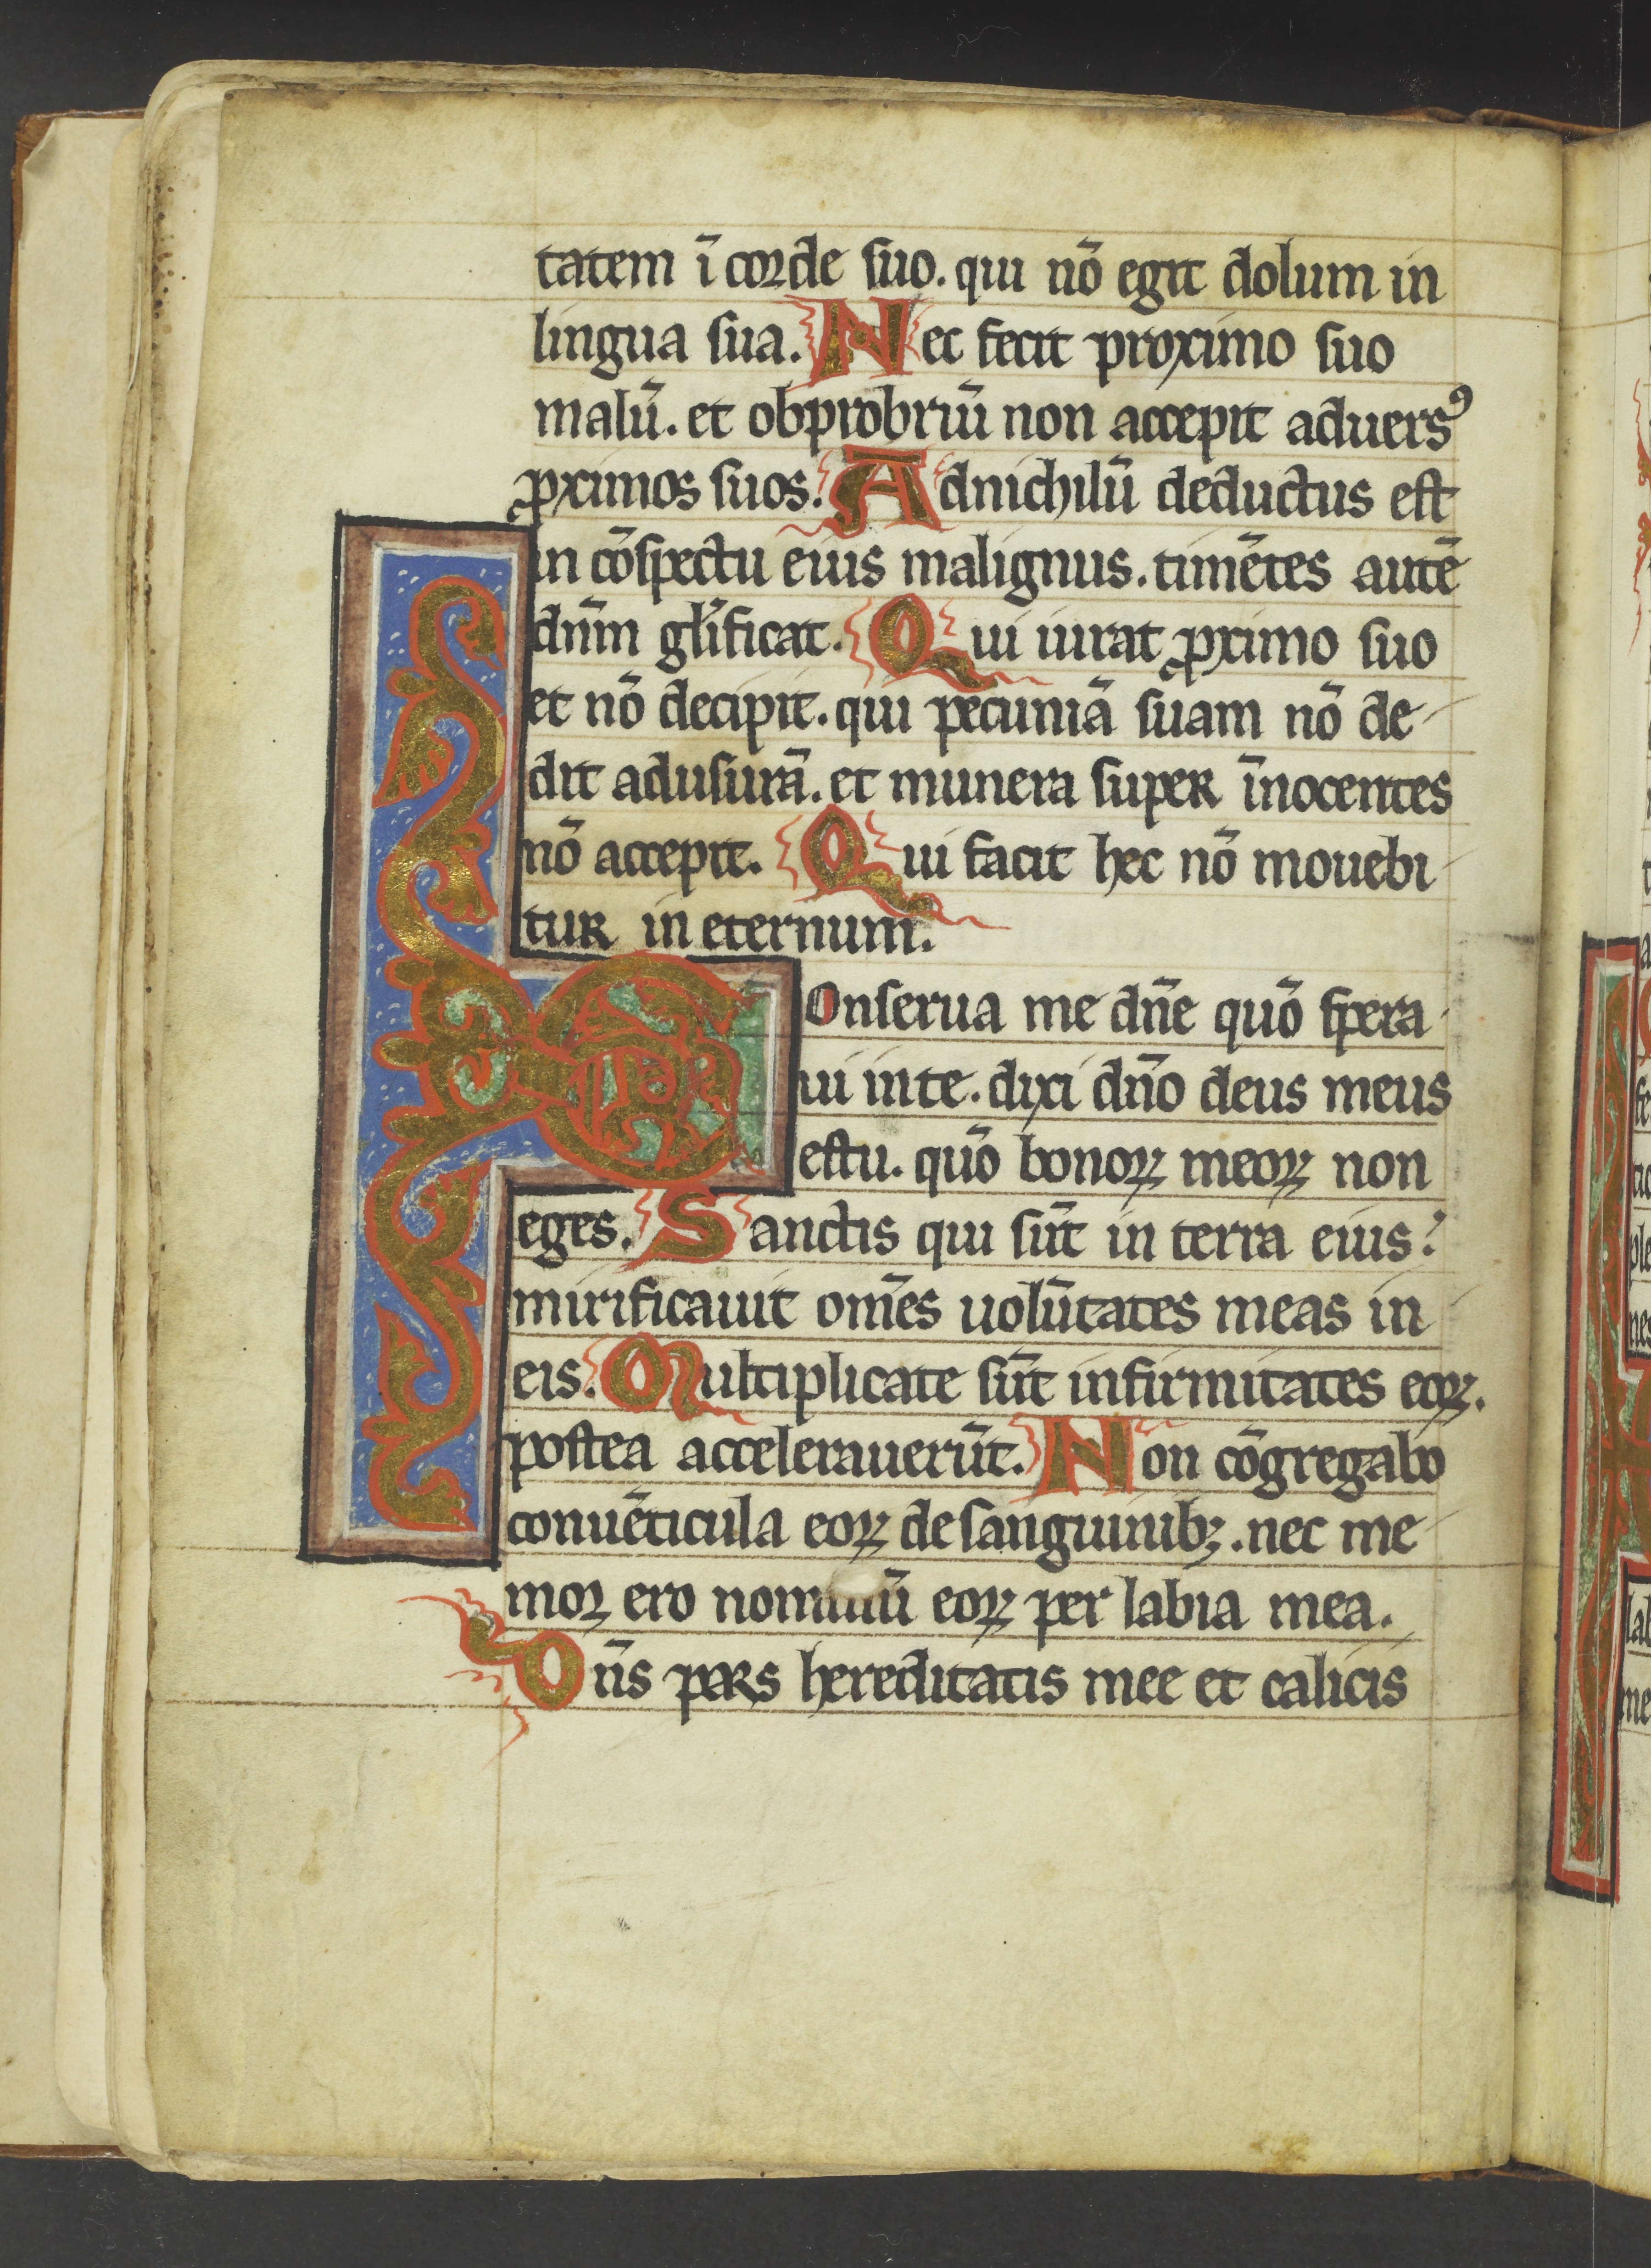 tatem ī corde suo. qui nō egit dolum in
lingua sua. Nec fecit proximo suo
malū. et obprobriū non accepit aduersꝰ
ꝓximos suos. Adnichilū deductus est
in cōspectu eius malignus. timētes autē
dn̄m gl̄ificat. Qui iurat ꝓximo suo
et nō decipit. qui pecuniā suam nō de
dit adusurā. et munera super īnocentes
nō accepit. Qui facit hec nō mouebi
tur in eternum.
Conserua me dn̄e quō spera
ui inte. dixi dn̄o deus meus
estu. quō bonoꝝ meoꝝ non
eges. Sanctis qui sūt in terra eius.
mirificauit om̄es uolūtates meas in
eis. Multiplicate sūt infirmitates eoꝝ.
postea accelerauerūt. Non cōgregabo
conuēticula eoꝝ de sanguinibꝫ. nec me
mor ero nominū eoꝝ per labia mea.
Dn̄s pars hereditatis mee et calicis